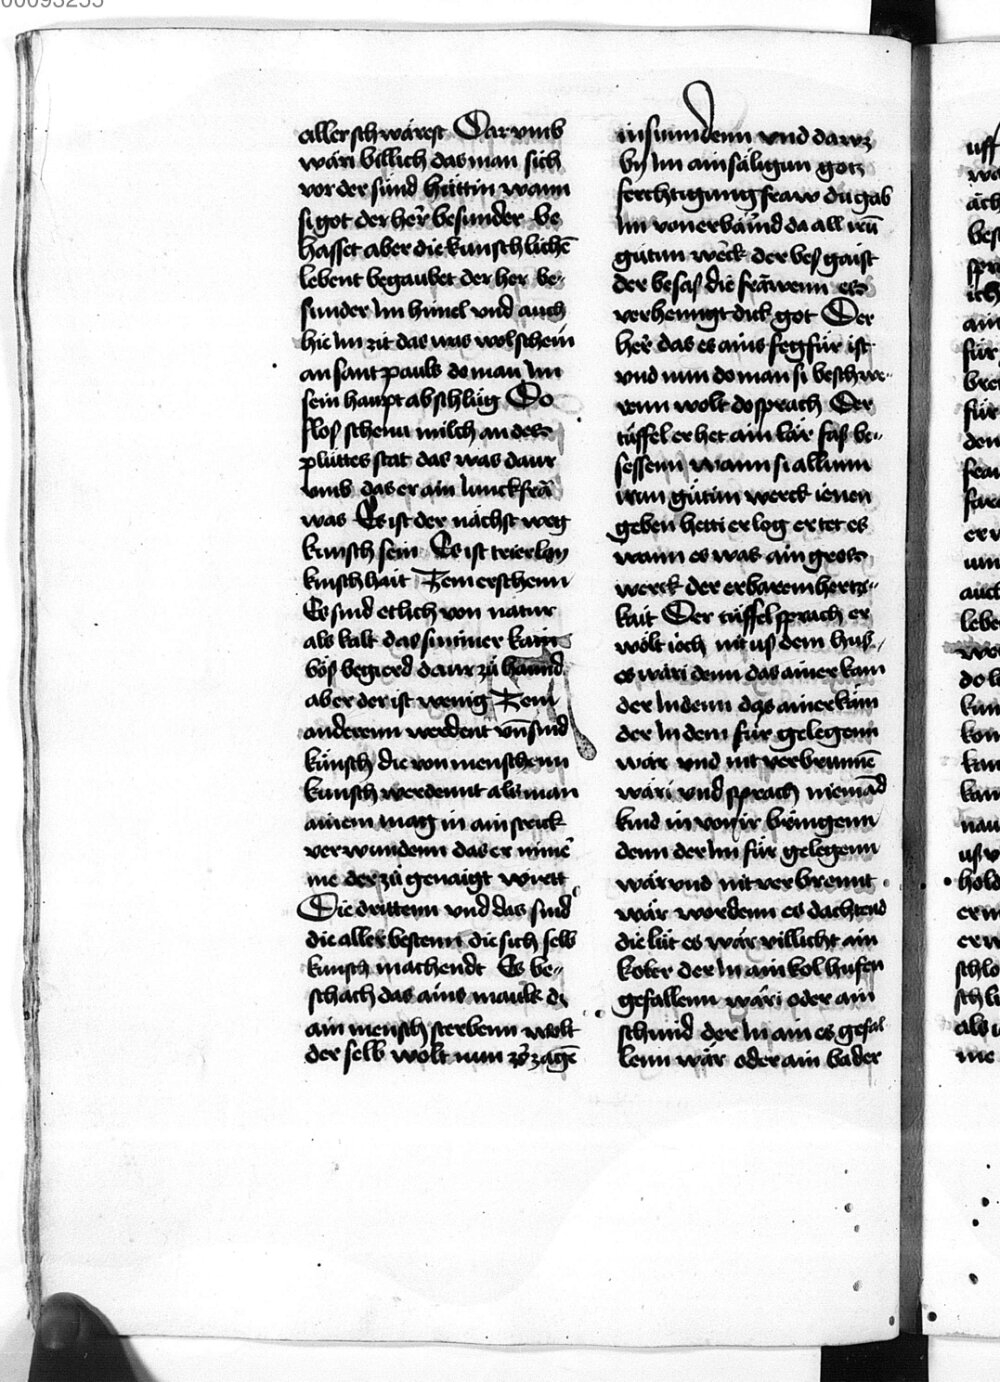 00093255
aller schwárest Dar vmb
wári billich das man sich
vor der sünd hüttin wann
si got der her̃ besunder be
hasset aber die kunschlichē
lebent begaubet der her be-
sunder Im himel vnd auch
hie Im zit das was wol schein
an sant pauls do man Im
sein haupt abschlüg Do
flos schenu milch an des
plüttes stat das was daur
vmb das er ain Iunckfrā
was Es ist der nächst weg
kunsch sein Es ist trierlay
kuschhait Zem erschenn
Es sind etlich von natur
als kalt das si nimer kain
bös begierd daur zü haund
aber der ist wenig Zem
anderenn werdent vn̄ sind
künsch die von menschenn
kunsch werdennt als man
ainem mag in ain strick
verwundenn das er nimē
me der zü genaigt wirtt
Die drittenn vnd das sind
die aller bestenn die sich selb
kunsch machendt Es be-
schach das ains mauls do
ain mensch sterbenn wolt
der selb wolt nun v̈erzagē
in sunndenn vnd
by Im ain säligun gotz
ferchtigung fraw du gab
Im von erbäümd da all irū
gütun werck der bes gaist
der besas die frāwenn es
verhenngt dick got Der
her̃ das es ains fegfür ist
vnd nun do man si beschwe-
renn wolt do sprach Der
tüffel er het ain lär fas be-
sessenn wann si allunn
irun gütun werck ienen
geben hetti er log er tet es
wann es was ain gros
werck der erbarem hertz-
kait Der tüffel sprach er
wölt ioch nit us dem hus
es wäri denn das ainer kam
der In denn das ainer käm
der In dem für gelegenn
wär vnd nit verbrunnē
wäri vnd sprach niemād
kind in von ir bringenn
denn der Im für gelegenn
wär vnd nit verbrennt
wär wordenn es dachtend
die lüt es wär villicht ain
koler der In ain kolhufen
gefallenn wäri oder ain
schmid der In ain es gefal
lenn wär oder ain bader